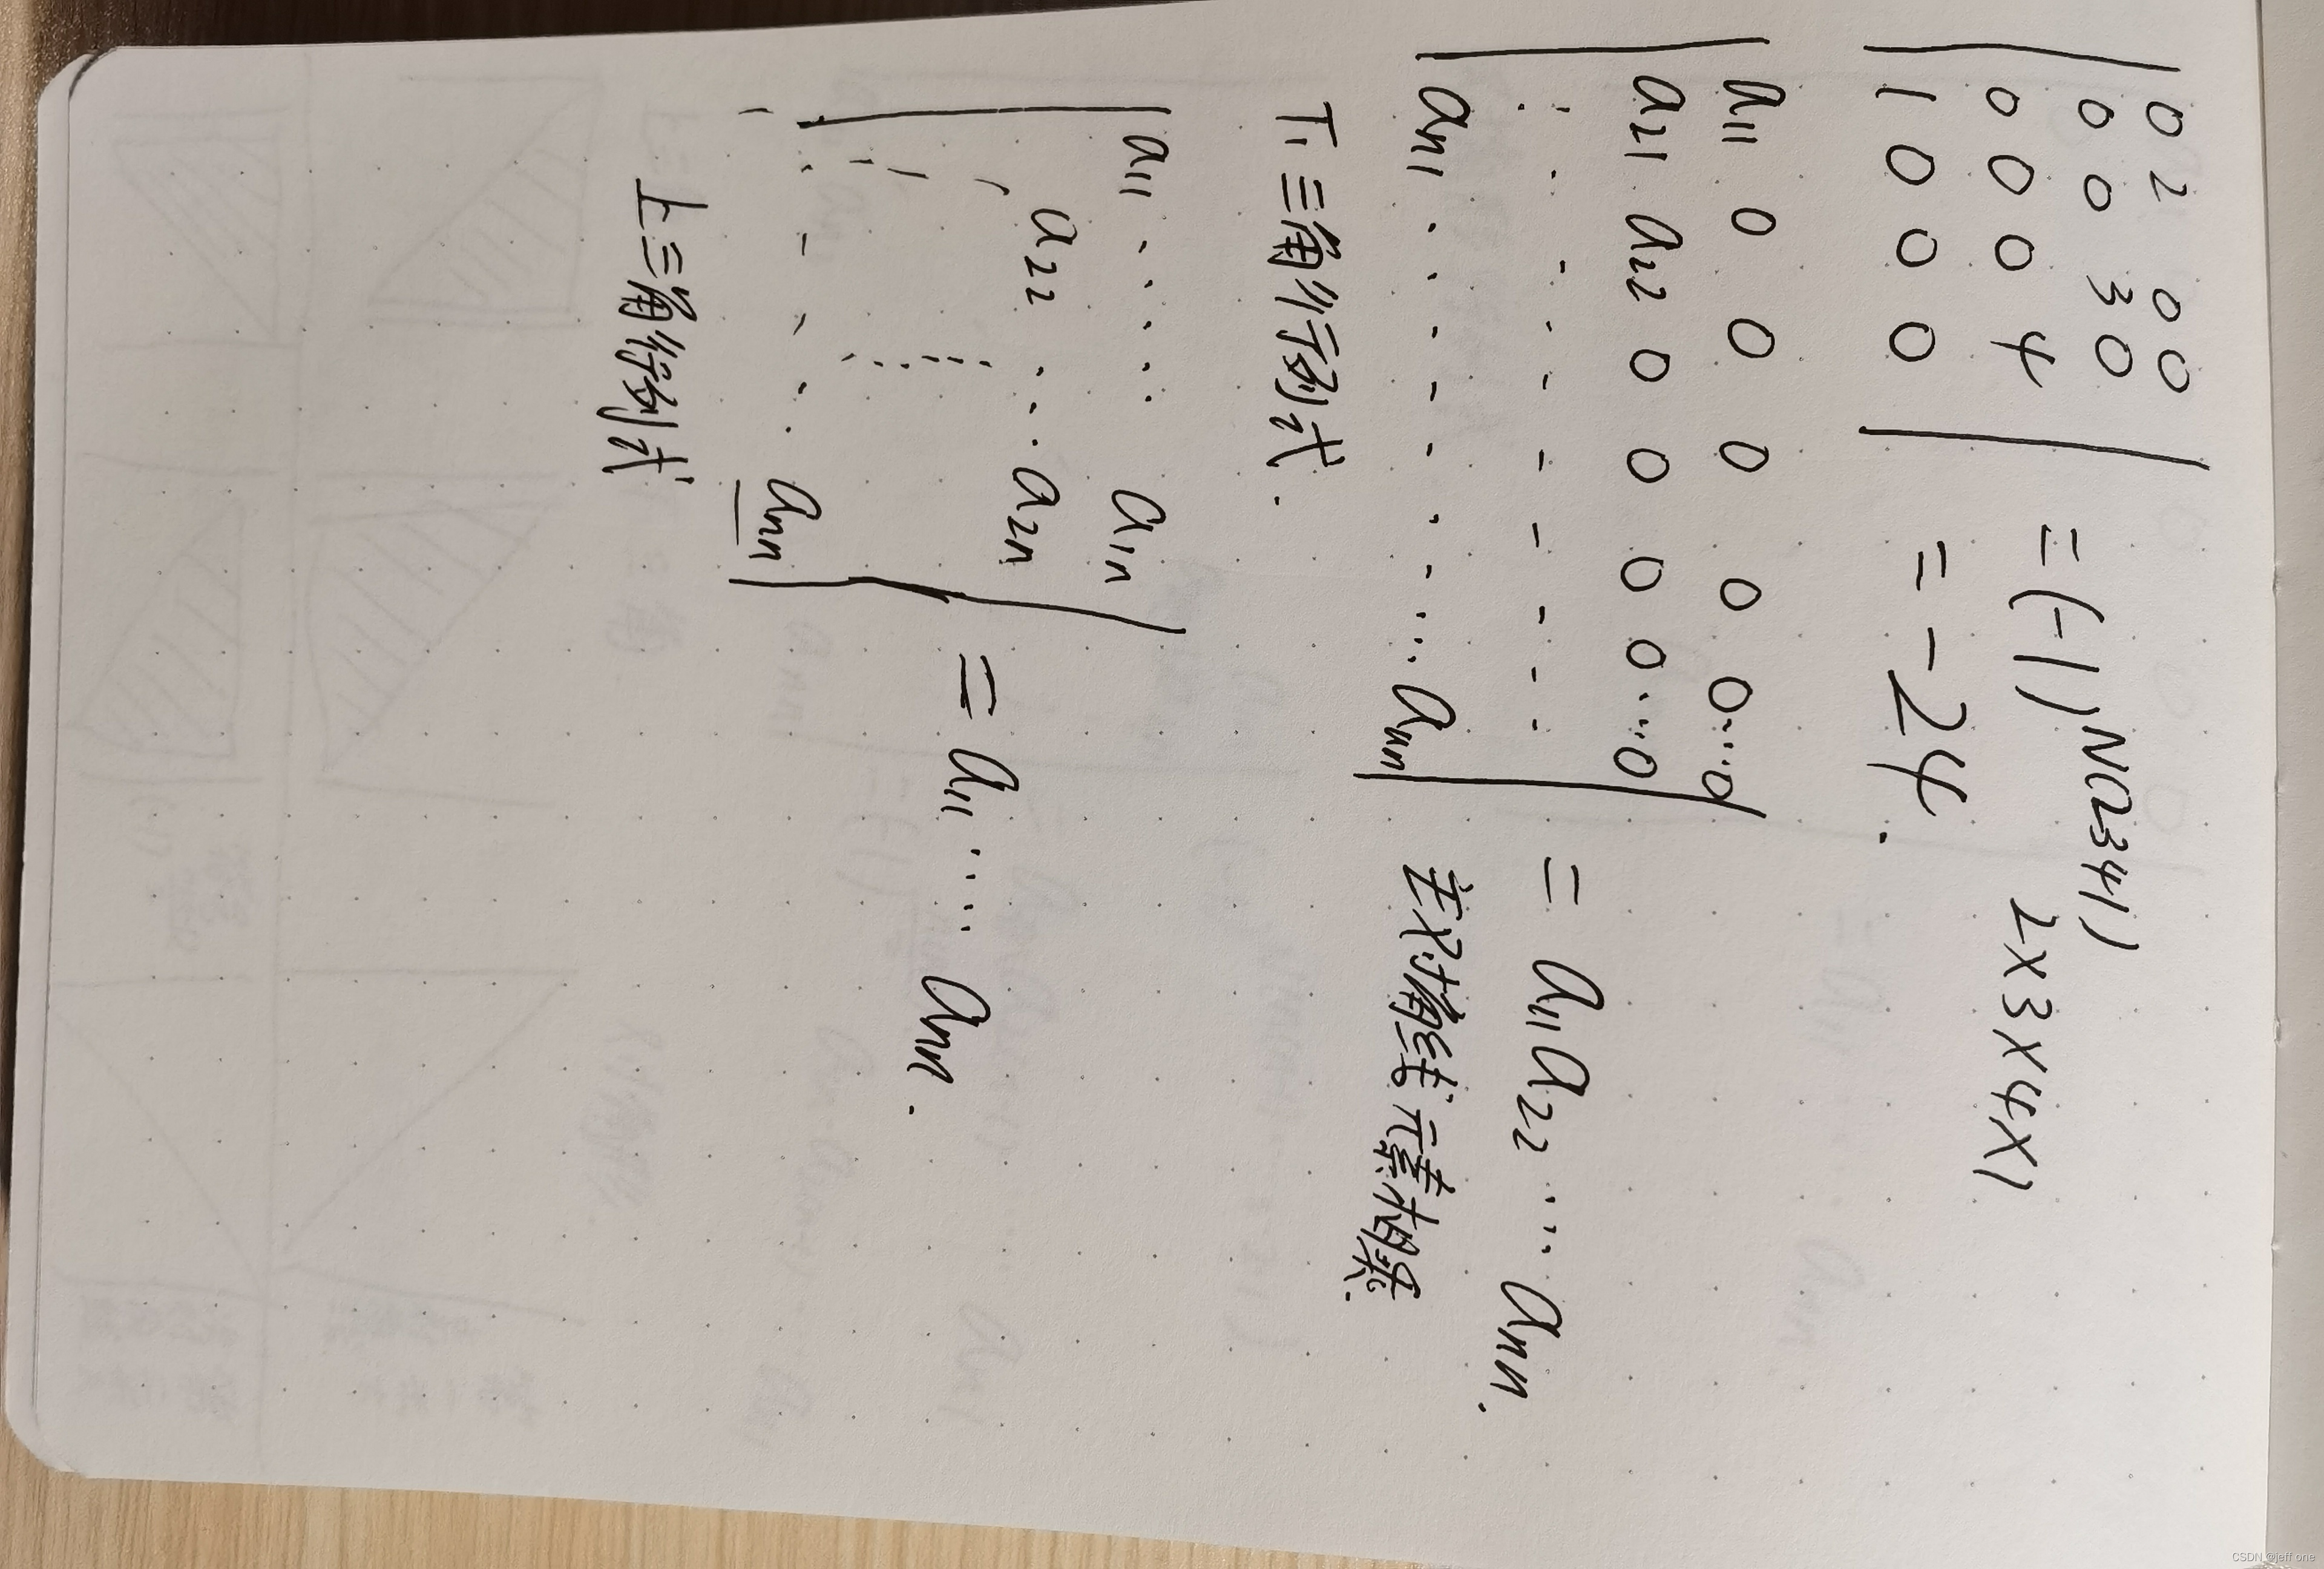 0 2 0 0
0 0 3 0
0 0 0 4
1 0 0 0
= (-1)^N(2341) 2×3×4×1
= -24.
a11 0 0 0 0 0 ... 0
a21 a22 0 0 0 0 ... 0
an1 ... ann
= a11 a22 ... ann.
主对角线元素相乘.
下三角行列式.
a11 ... a1n
a22 ... a2n
ann
= a11 ... ann.
上三角行列式
CSDN @jeff one